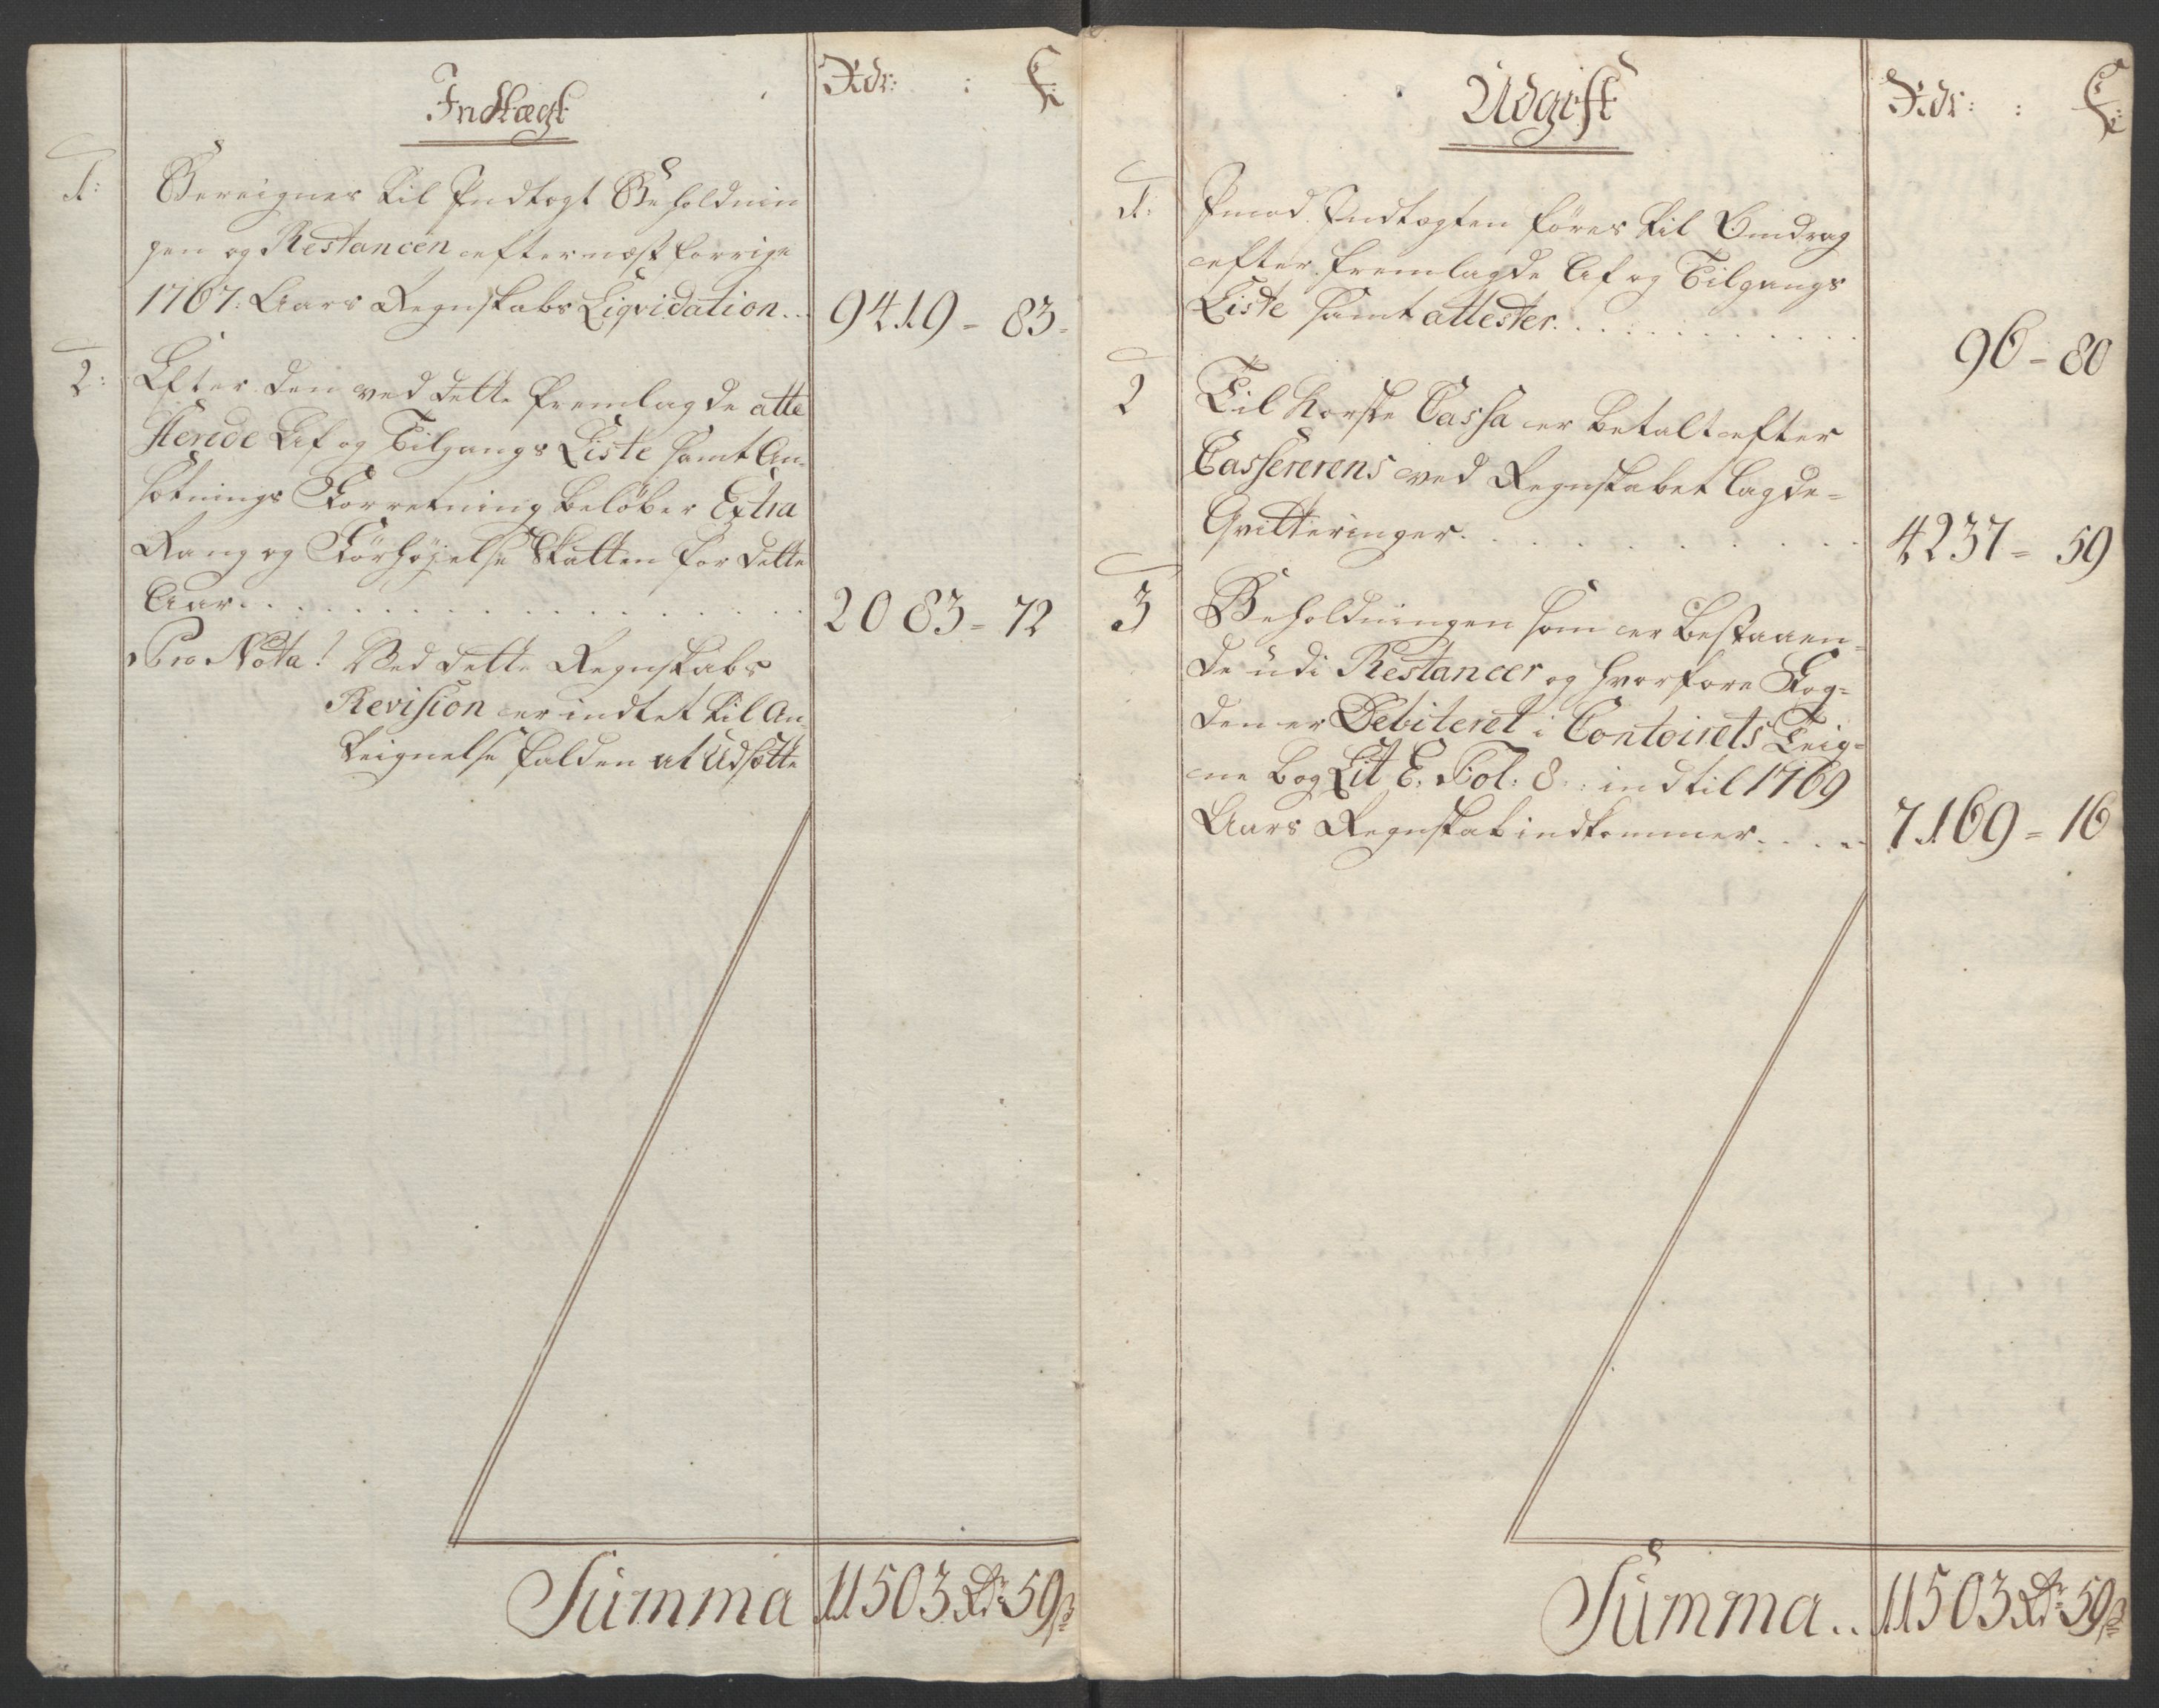 Indtægt
Rdr: : ß:
1: Bereignes til Indtægt Beholdnin
gen og Restancen efter næst forrige
1767. Aars Regnskabs Liqvidation.. 9419 - 83 -
2: Efter den ved dette fremlagde atte
sterede Af og Tilgangs Liste samt An-
sætnings Forretning beløber Extra
Rang og Forhøjelse Skatten for dette
Aar. . . . . . . . . . . . . 2083 - 72
Pro Nota! Ved dette Regnskabs
Revision er indtet til An-
teignelse falden at Udsætte
Summa 11503 Rdr 59 ß
Udgift
Rdr: : ß:
1: Imod Indtægten føres til Omdrag
efter fremlagde Af og Tilgangs
Liste samt attester. . . . . . . . . .
96 - 80
2 Til Norske Cassa er betalt efter
Cassererens ved Regnskabet lagde-
Qvitteringer. . . . . . . . . 4237 - 59
3 Beholdningen som er bestaaen-
de udi Restancer og hvorfore Fog-
den er Debiteret i Contoirets Teig-
ne bog Lit E. Fol: 8: indtil 1769
Aars Regnskab indkommer. . . . . 7169 - 16
Summa.. 11503 Rdr 59 ß